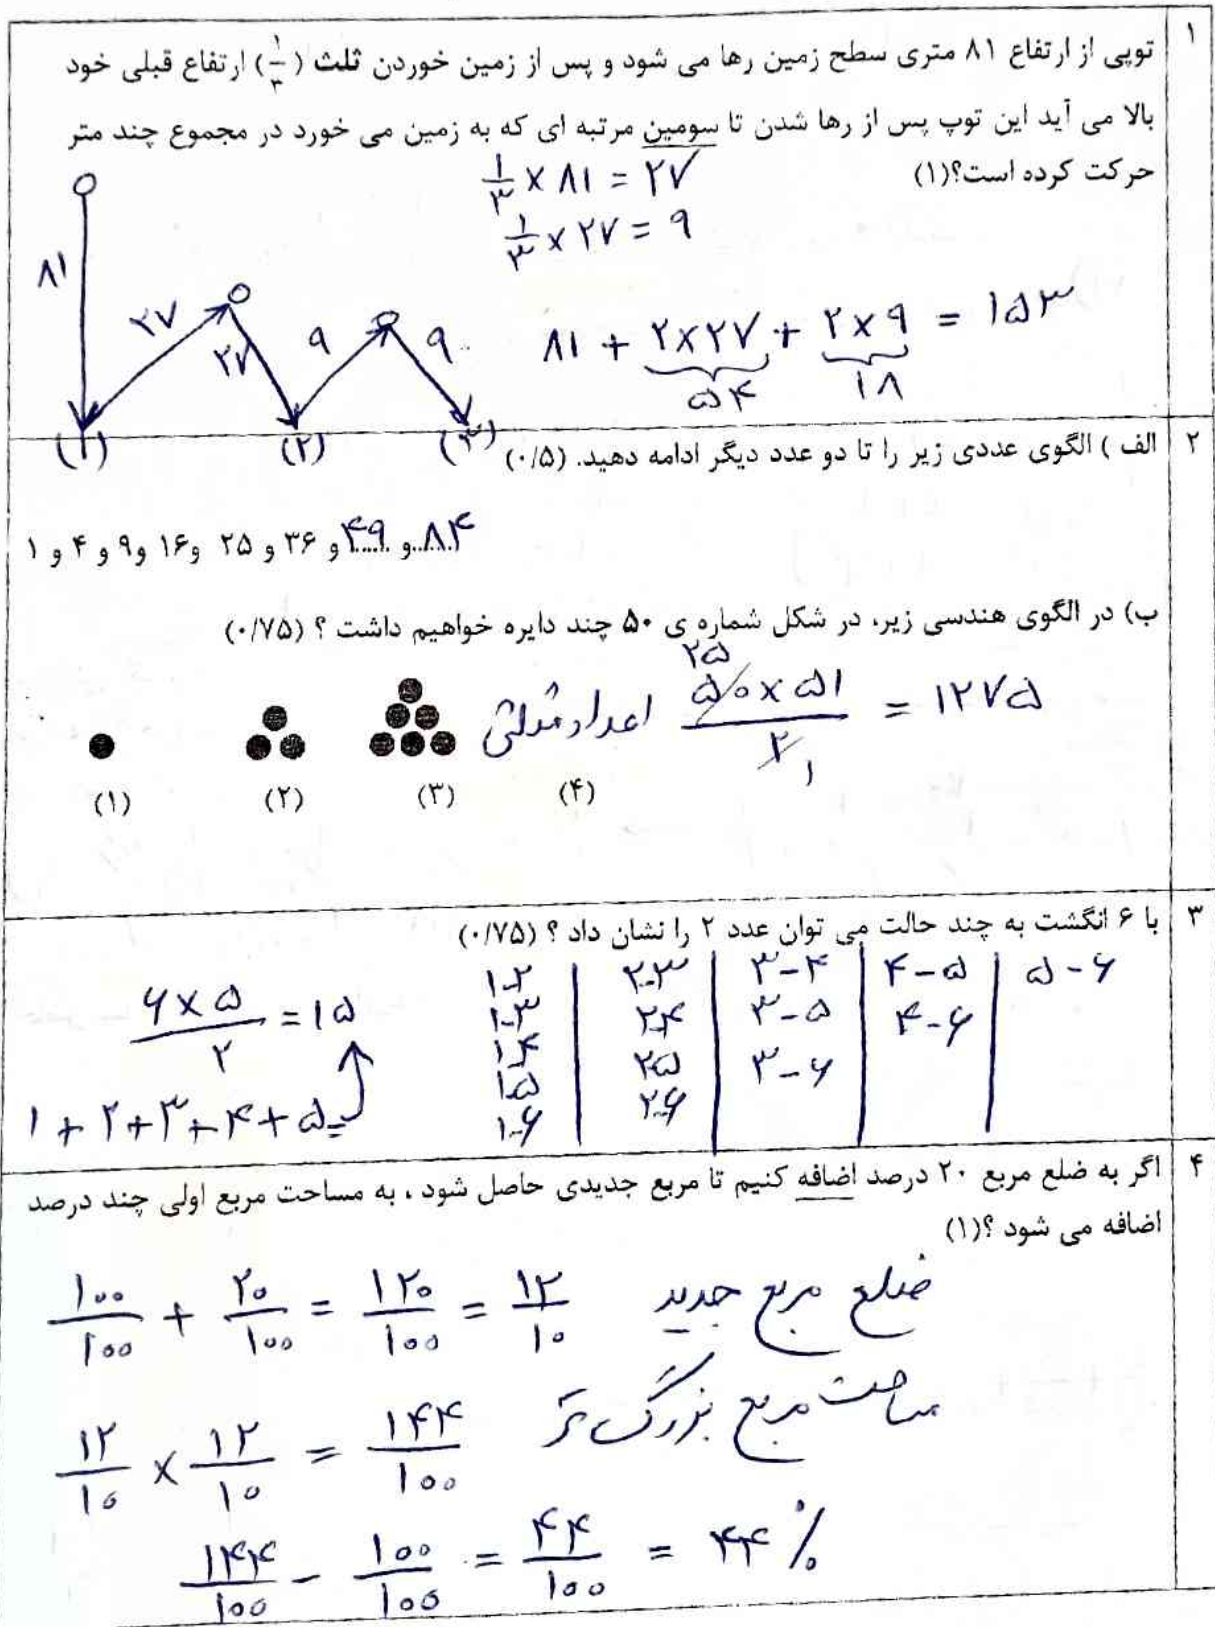 ۱
توپی از ارتفاع ۸۱ متری سطح زمین رها می شود و پس از زمین خوردن ثلث (۱/۳) ارتفاع قبلی خود
بالا می آید این توپ پس از رها شدن تا سومین مرتبه ای که به زمین می خورد در مجموع چند متر
حرکت کرده است؟(۱)
۱/۳ × ۸۱ = ۲۷
۱/۳ × ۲۷ = ۹
۸۱
۲۷
۲۷
۹
۹
۸۱ + ۲×۲۷ + ۲×۹ = ۱۵۳
۵۴
۱۸
(۱) (۲) (۳)
۲
الف ) الگوی عددی زیر را تا دو عدد دیگر ادامه دهید. (۰/۵)
۱ و ۴ و ۹ و ۱۶ و ۲۵ و ۳۶ و ۴۹ و ۸۴
ب) در الگوی هندسی زیر، در شکل شماره ی ۵۰ چند دایره خواهیم داشت ؟ (۰/۷۵)
اعداد مثلثی
۲۵
۵۰×۵۱/۲ = ۱۲۷۵
۱
(۱) (۲) (۳) (۴)
۳
با ۶ انگشت به چند حالت می توان عدد ۲ را نشان داد ؟ (۰/۷۵)
۱-۲ ۲-۳ ۳-۴ ۴-۵ ۵-۶
۱-۳ ۲-۴ ۳-۵ ۴-۶
۱-۴ ۲-۵ ۳-۶
۱-۵ ۲-۶
۱-۶
۶×۵/۲ = ۱۵
۱+۲+۳+۴+۵=
۴
اگر به ضلع مربع ۲۰ درصد اضافه کنیم تا مربع جدیدی حاصل شود ، به مساحت مربع اولی چند درصد
اضافه می شود ؟(۱)
۱۰۰/۱۰۰ + ۲۰/۱۰۰ = ۱۲۰/۱۰۰ = ۱۲/۱۰ ضلع مربع جدید
۱۲/۱۰ × ۱۲/۱۰ = ۱۴۴/۱۰۰ مساحت مربع بزرگ تر
۱۴۴/۱۰۰ - ۱۰۰/۱۰۰ = ۴۴/۱۰۰ = ۴۴ %